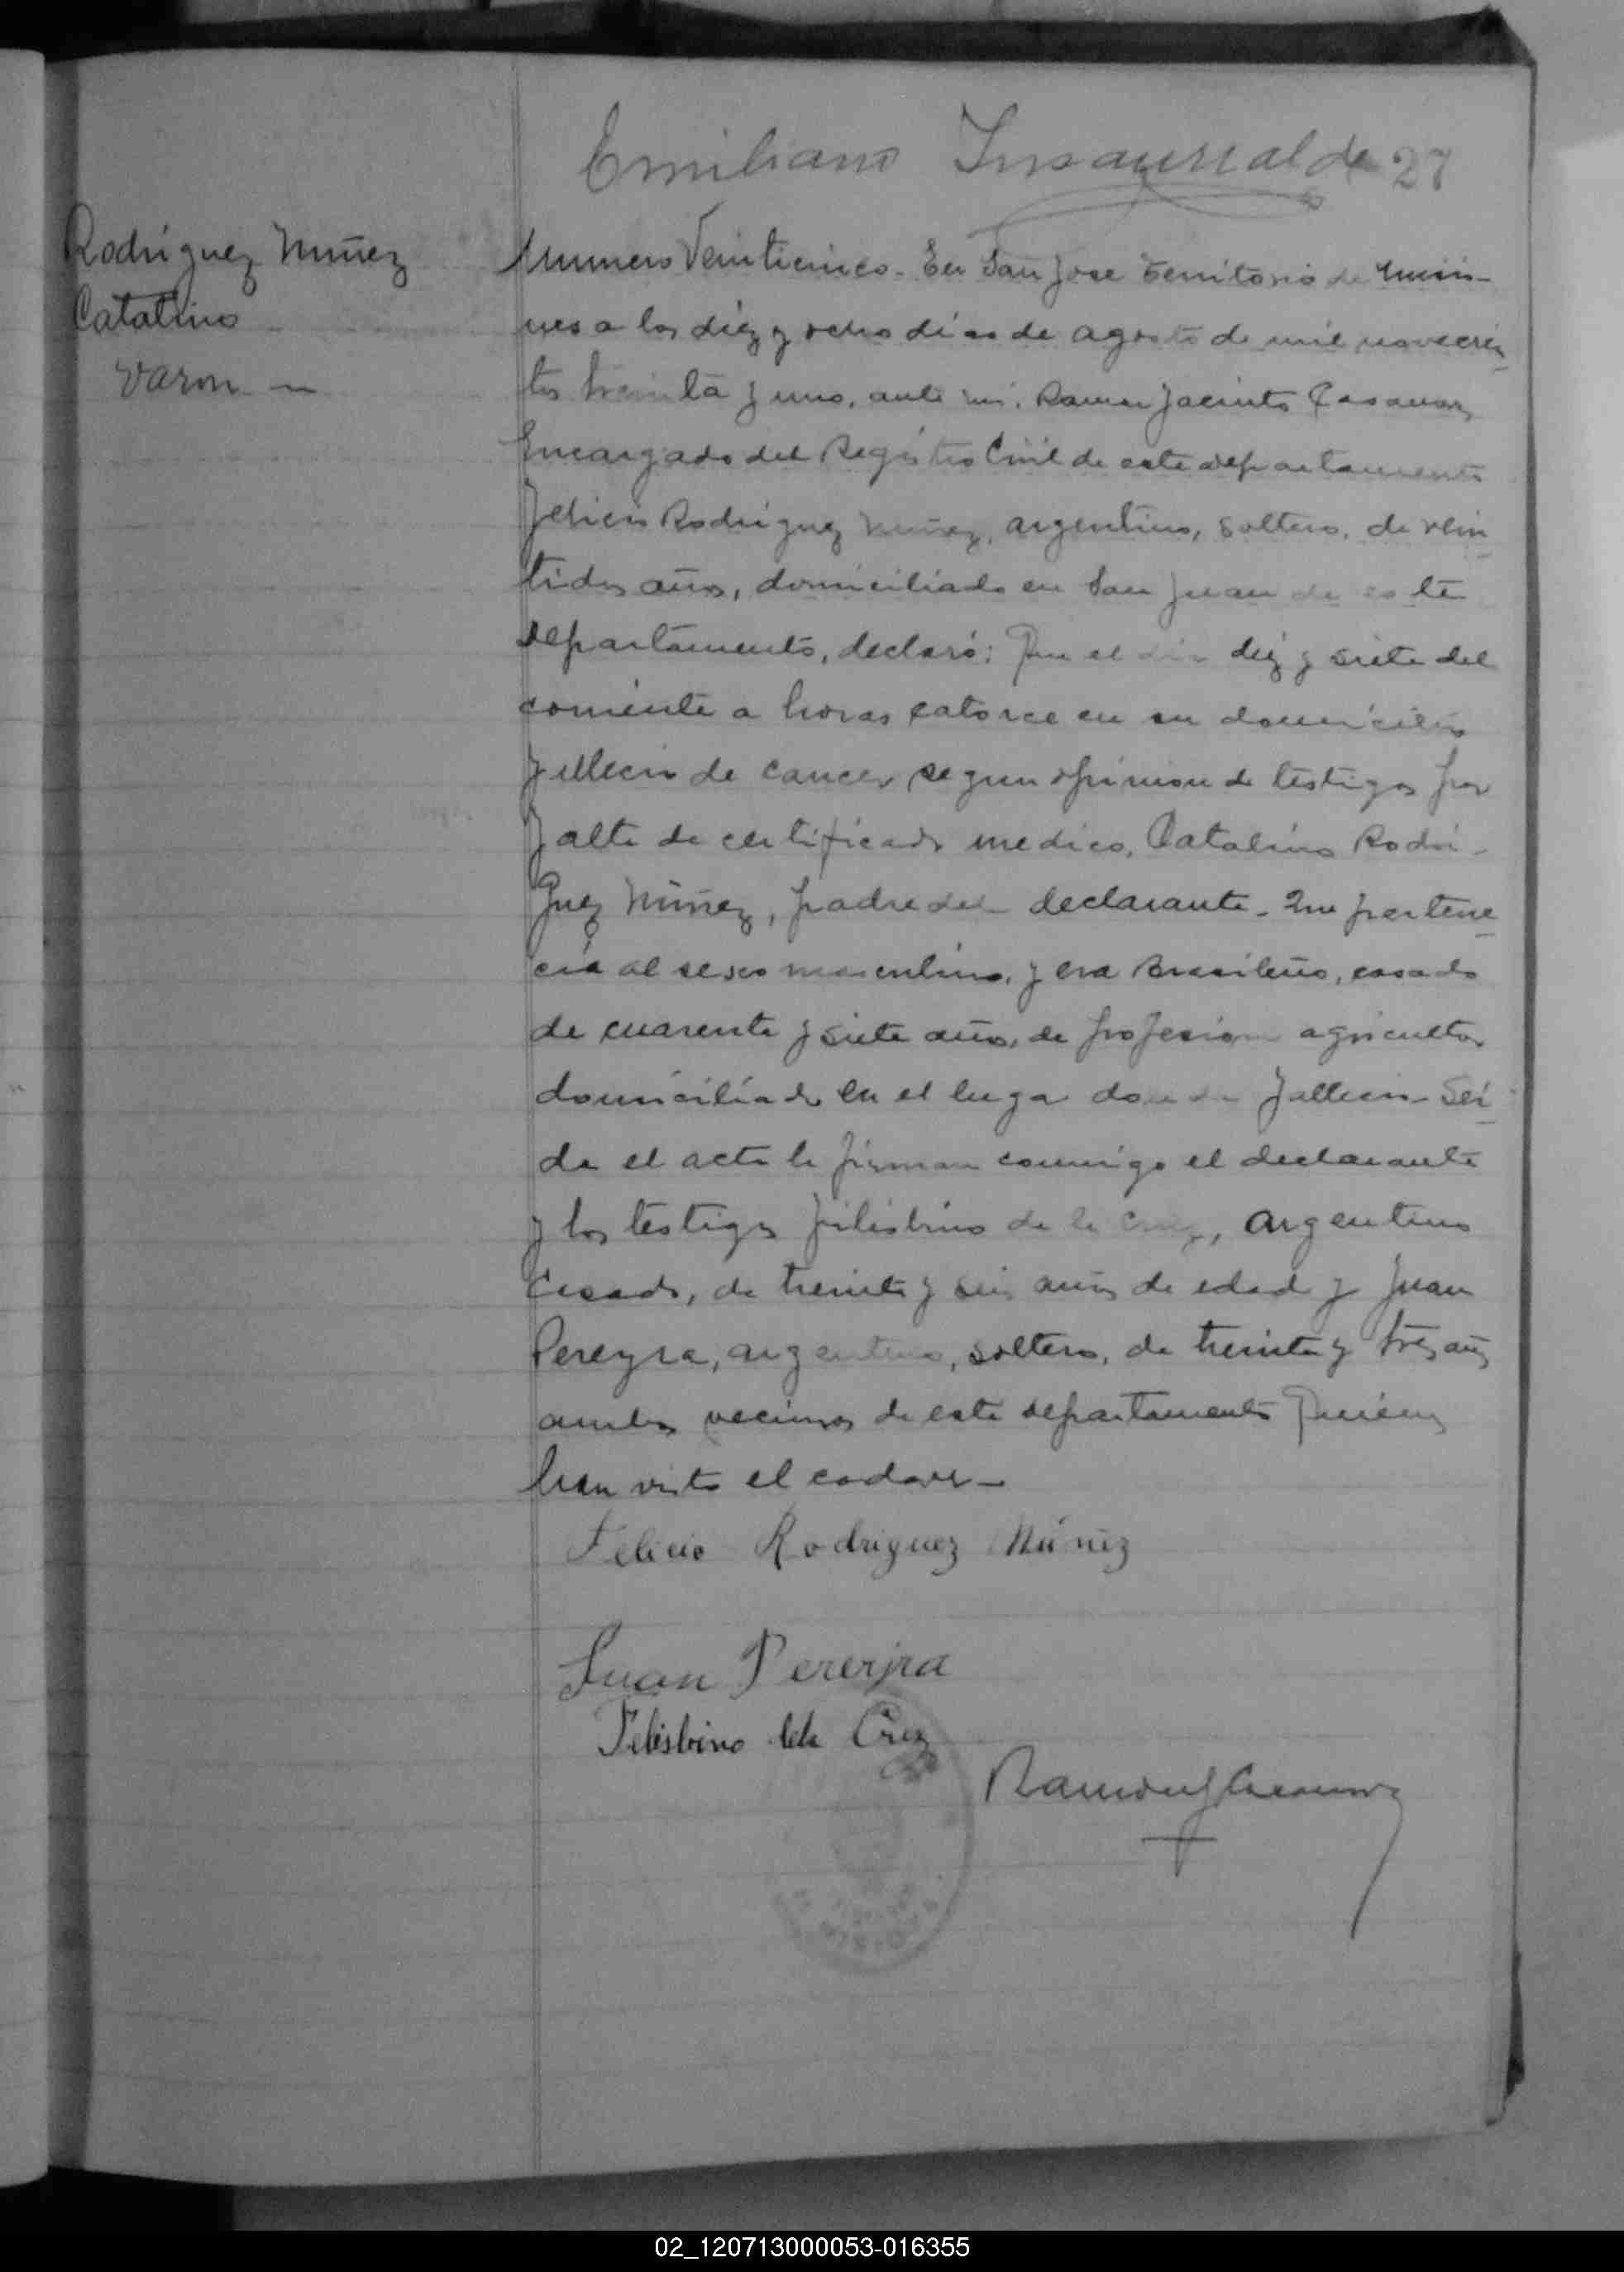 Emiliano Insaurralde 27
Rodriguez Núñez
Catalino
Varon
Numero Veinticinco. En San José Territorio de Misio-
nes a los diéz y ocho dias de agosto de mil novecien
tos treinta y uno, ante mi, Ramon Jacinto Casanova
Encargado del Registro Civil de este departamento
Felicio Rodriguez Nuñez, argentino, soltero, de vein
tidos años, domiciliado en San Juan de este
departamento, declaró: Que el dia diéz y siete del
corriente a horas catorce en su domicilio
fallecio de cancer segun opinion de testigos por
falta de certificado medico, Catalino Rodri-
guez Núñez, padre del declarante. Que pertene
cia al sexo masculino, y era Brasileño, casado
de cuarenta y siete años, de profesion agricultor
domiciliado en el lugar donde fallecio. Lei
da el acta la firman conmigo el declarante
y los testigos Felisbino de la Cruz, argentino
casado, de treinta y seis años de edad y Juan
Pereyra, argentino, soltero, de treinta y tres años
ambos vecinos de este departamento quienes
han visto el cadaver
Felicio Rodriguez Núñez
Juan Pereyra
Felisbino dela Cruz
Ramon J Casanova
02_120713000053-016355